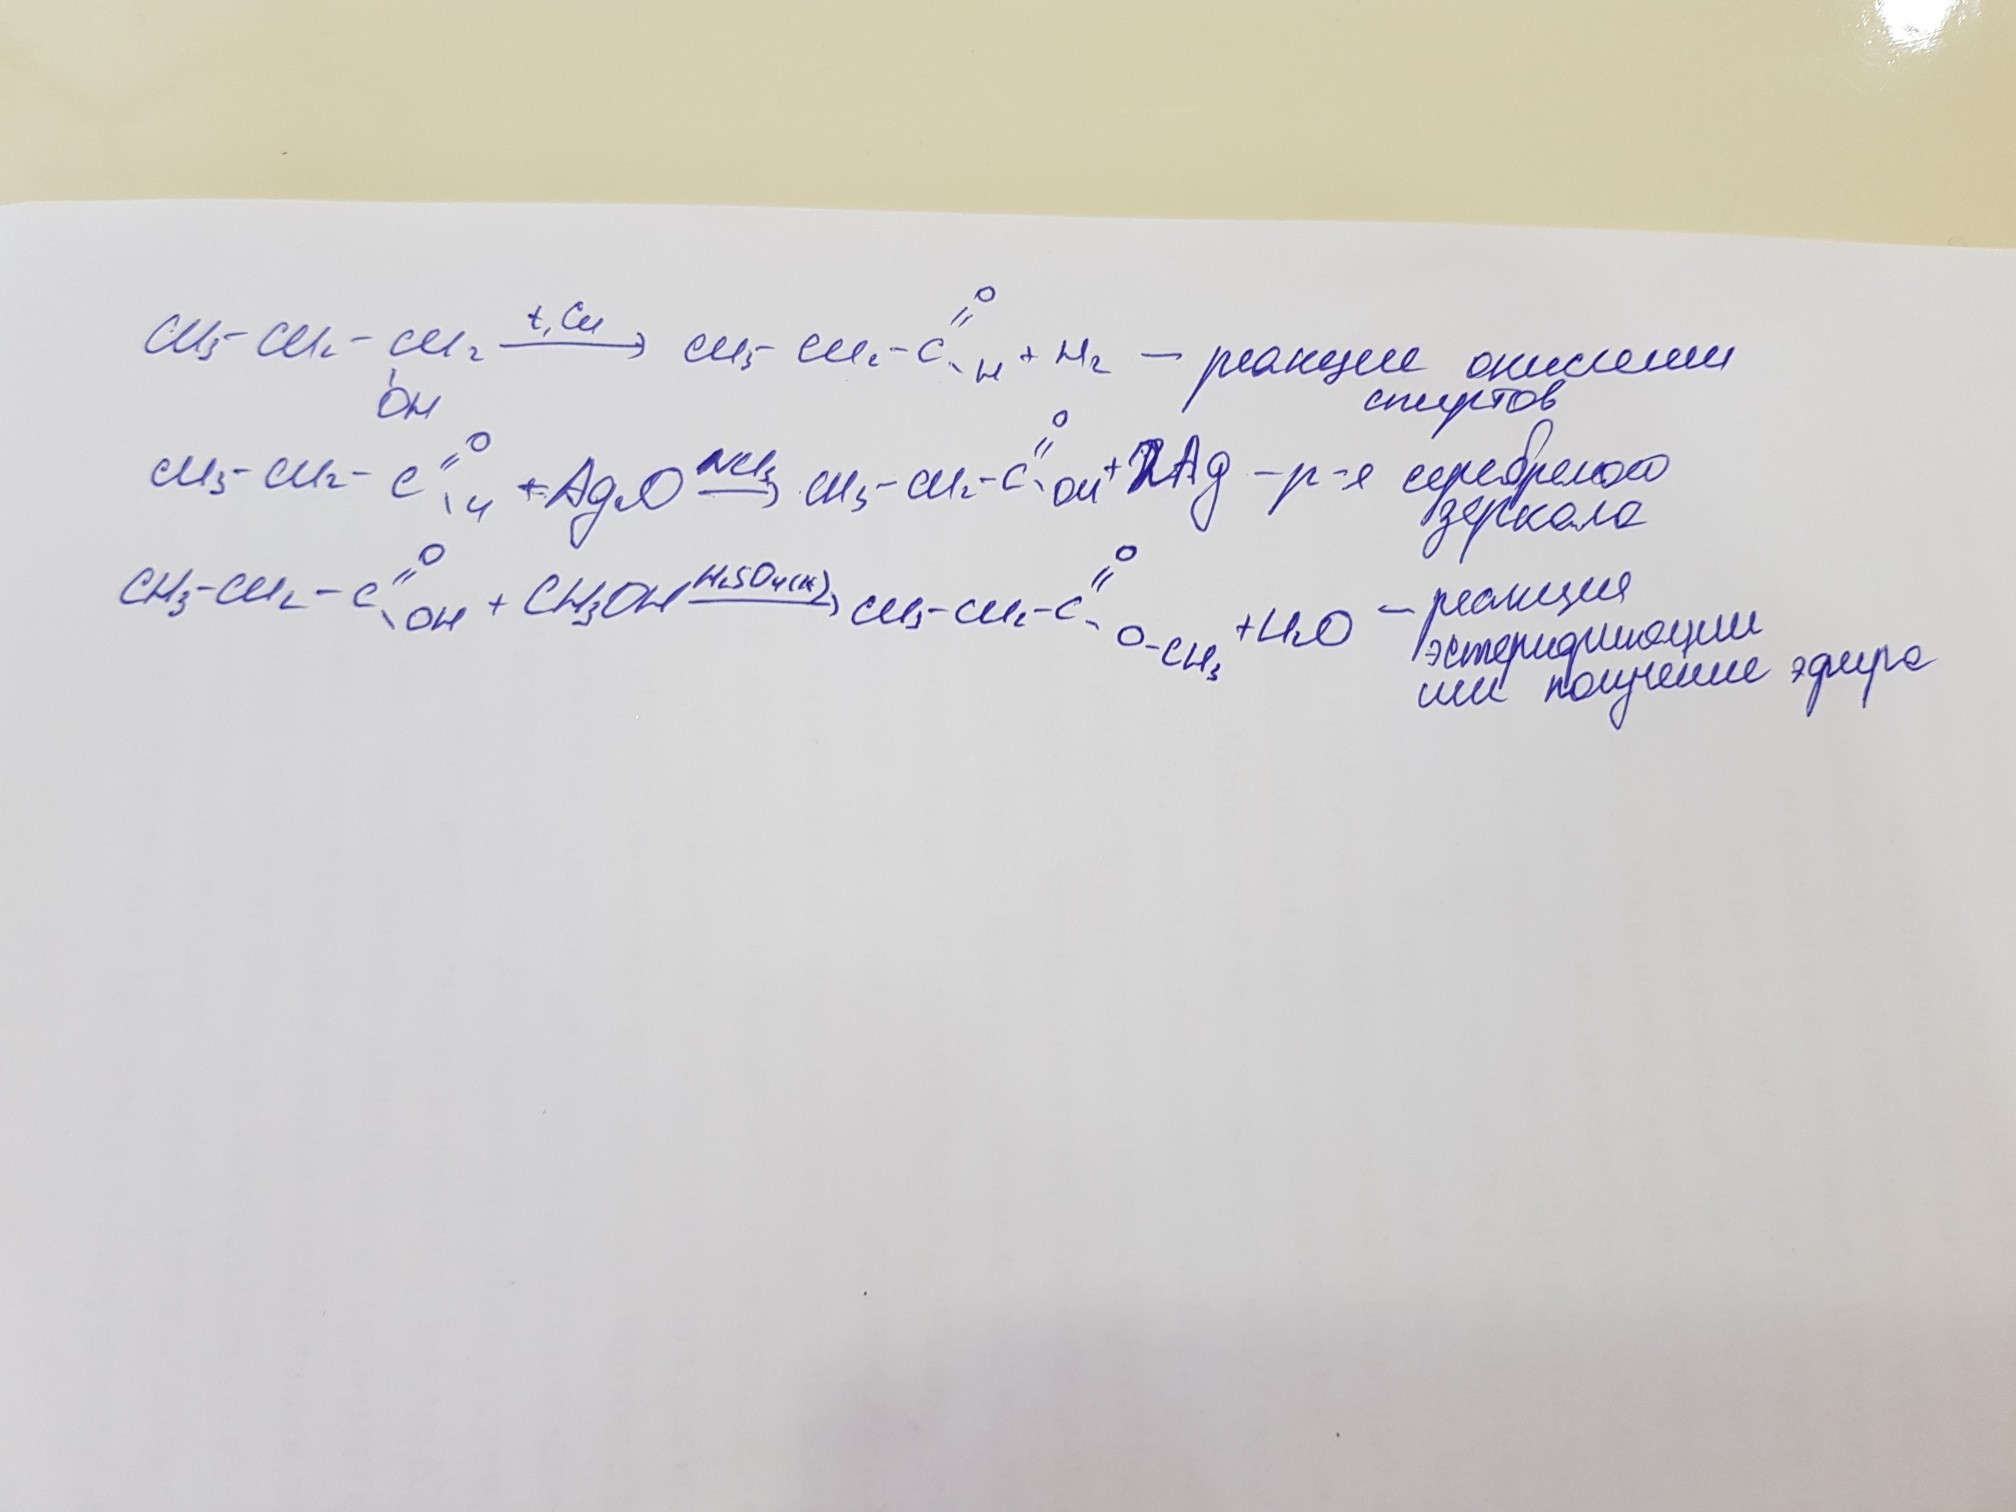 CH3-CH2-CH2 t, Cu → CH3-CH2-C =O -H + H2 — реакция окисления
OH спиртов
CH3-CH2-C =O -H + Ag2O NH3 → CH3-CH2-C =O -OH + 2Ag - р-я серебряного
зеркала
CH3-CH2-C =O -OH + CH3OH H2SO4(к) → CH3-CH2-C =O -O-CH3 + H2O — реакция
этерификации
или получение эфира